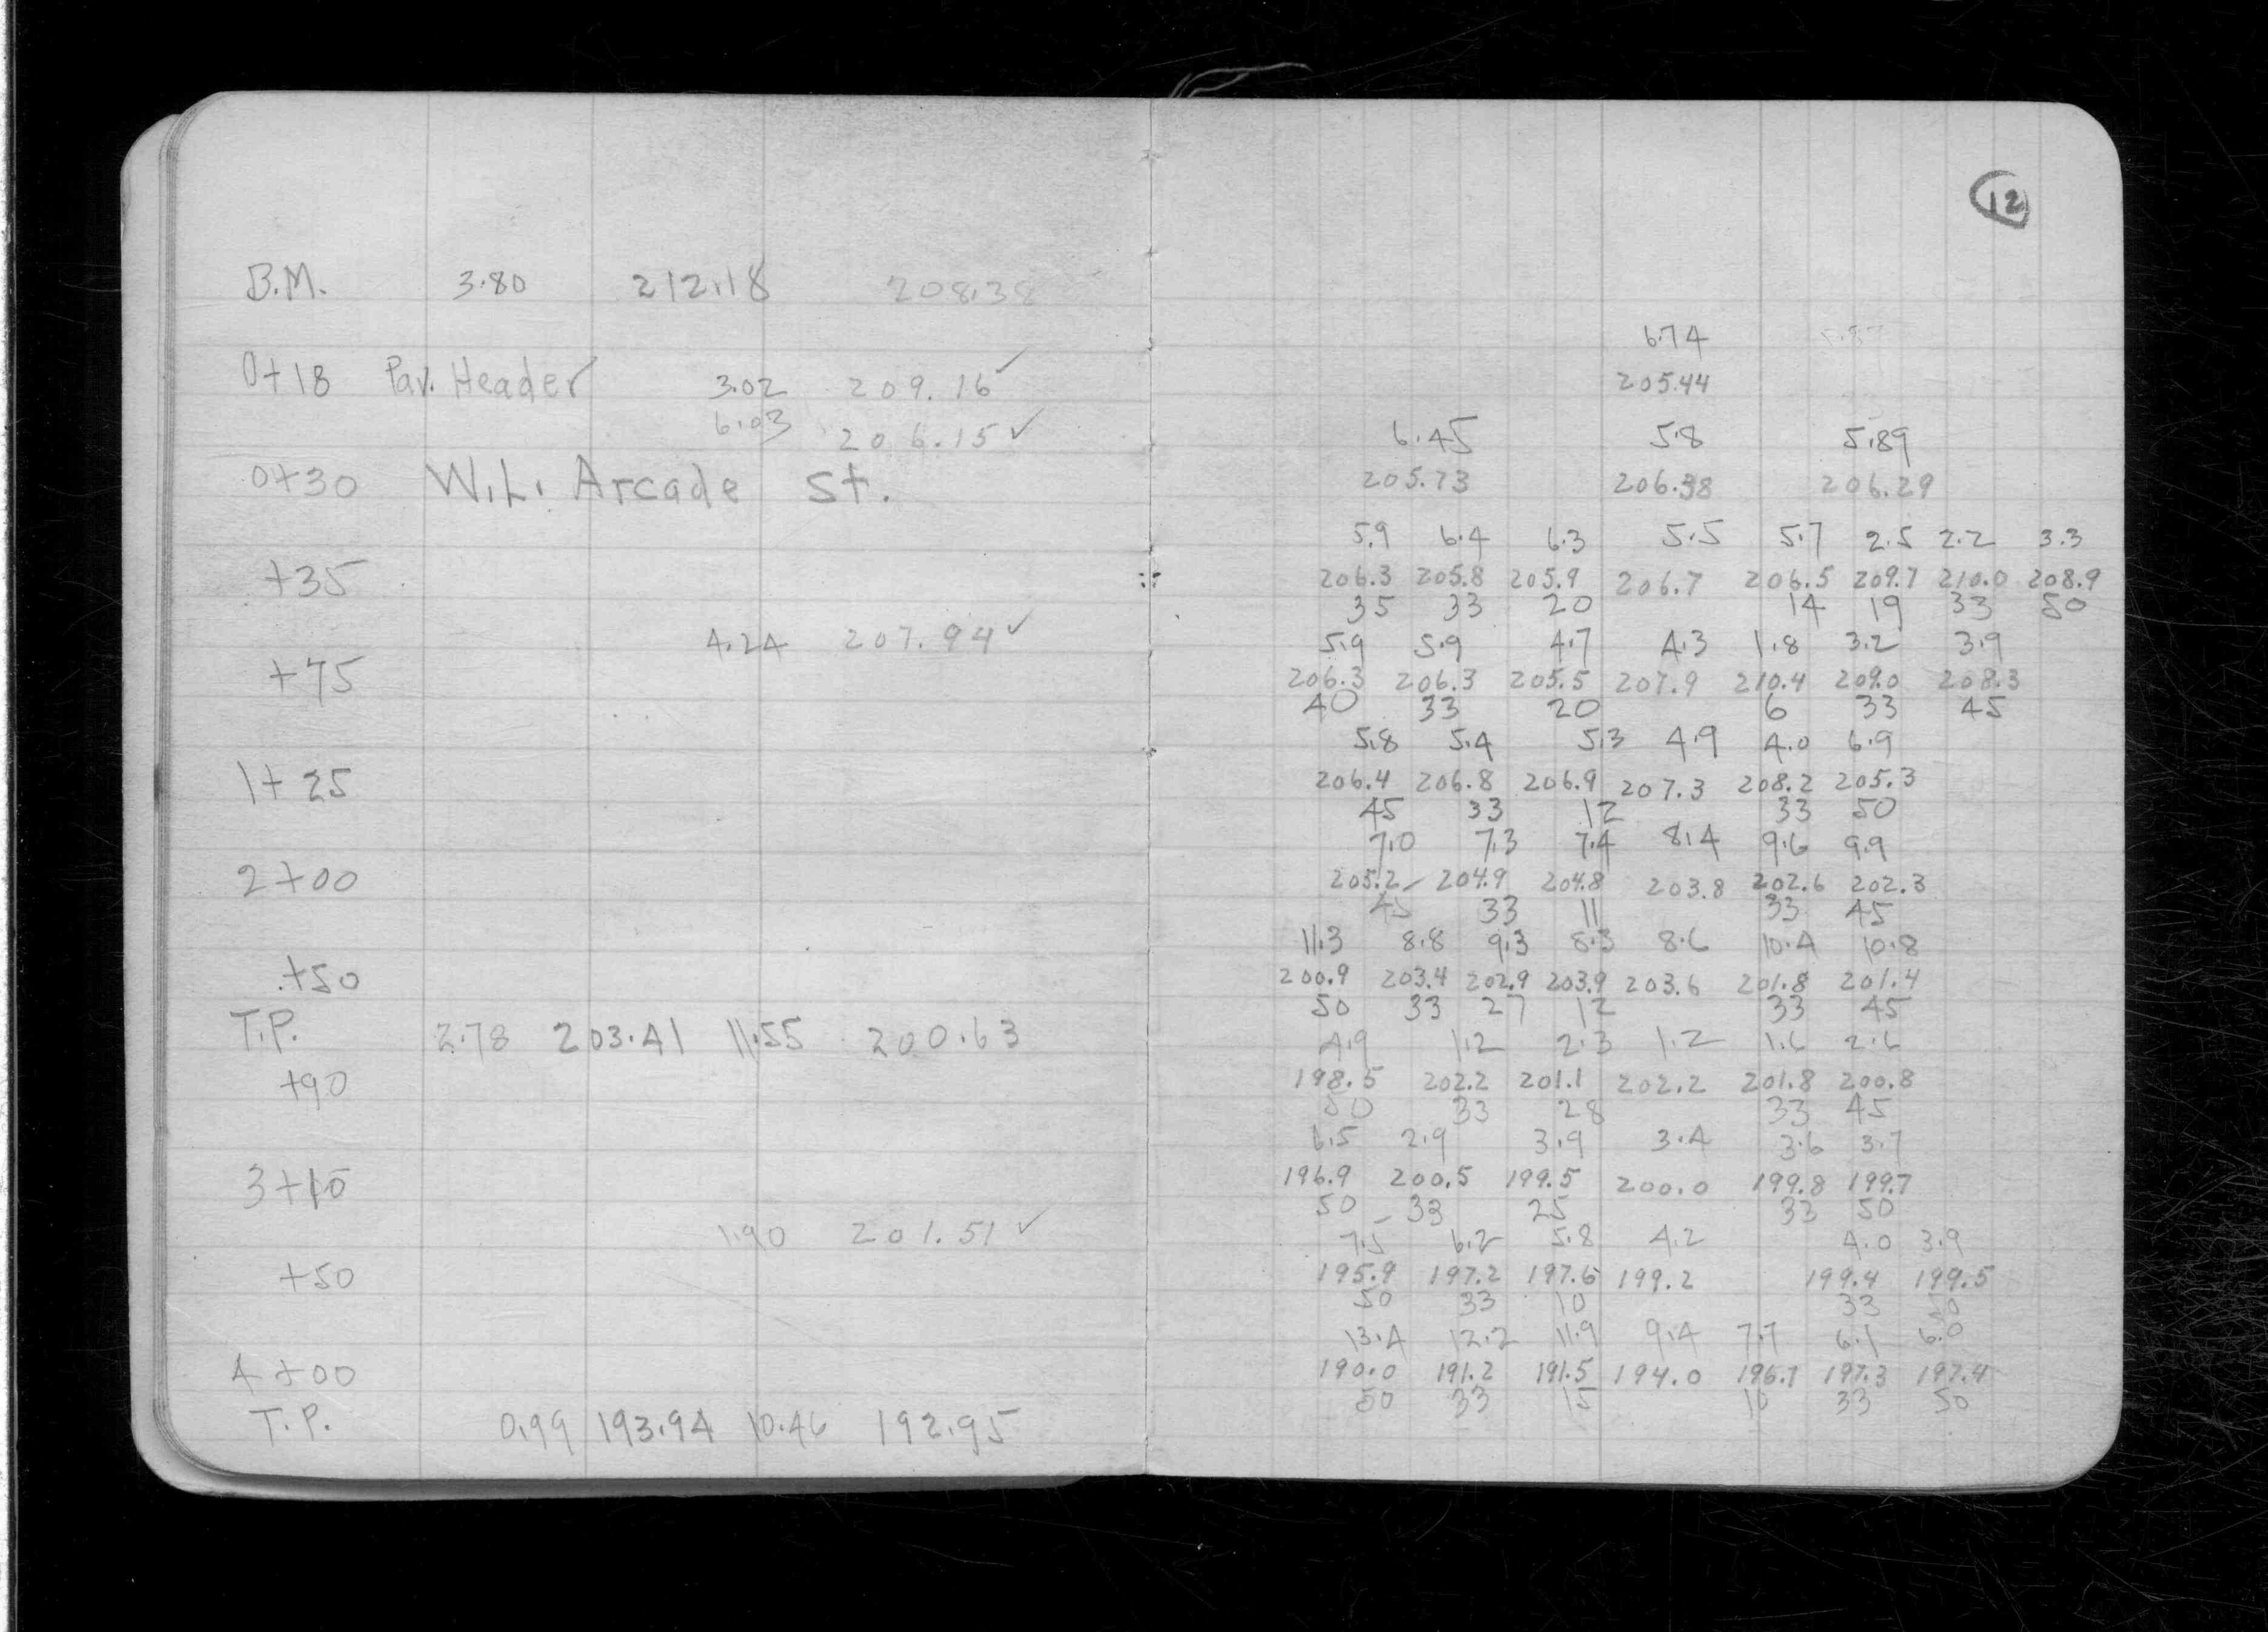 12
B.M. 3.80 212.18 208.38
6.74
0+18 Pav. Header 3.02 209.16 ✓
205.44
6.03 206.15 ✓
6.45 5.8 5.89
0+30 W.L. Arcade St.
205.73 206.38 206.29
5.9 6.4 6.3 5.5 5.7 2.5 2.2 3.3
+35
206.3 205.8 205.9 206.7 206.5 209.7 210.0 208.9
35 33 20 14 19 33 50
4.24 207.94 ✓
5.9 5.9 4.7 4.3 1.8 3.2 3.9
+75
206.3 206.3 205.5 207.9 210.4 209.0 208.3
40 33 20 6 33 45
5.8 5.4 5.3 4.9 4.0 6.9
1+25
206.4 206.8 206.9 207.3 208.2 205.3
45 33 12 33 50
7.0 7.3 7.4 8.4 9.6 9.9
2+00
205.2 204.9 204.8 203.8 202.6 202.3
45 33 11 33 45
11.3 8.8 9.3 8.3 8.6 10.4 10.8
+50
200.9 203.4 202.9 203.9 203.6 201.8 201.4
50 33 27 12 33 45
T.P. 2.78 203.41 11.55 200.63
4.9 1.2 2.3 1.2 1.6 2.6
+90
198.5 202.2 201.1 202.2 201.8 200.8
50 33 28 33 45
6.5 2.9 3.9 3.4 3.6 3.7
3+10
196.9 200.5 199.5 200.0 199.8 199.7
50 33 25 33 50
1.90 201.51 ✓
7.5 6.2 5.8 4.2 4.0 3.9
+50
195.9 197.2 197.6 199.2 199.4 199.5
50 33 10 33 50
13.4 12.2 11.9 9.4 7.7 6.1 6.0
4+00
190.0 191.2 191.5 194.0 196.7 197.3 197.4
50 33 15 10 33 50
T.P. 0.99 193.94 10.46 192.95